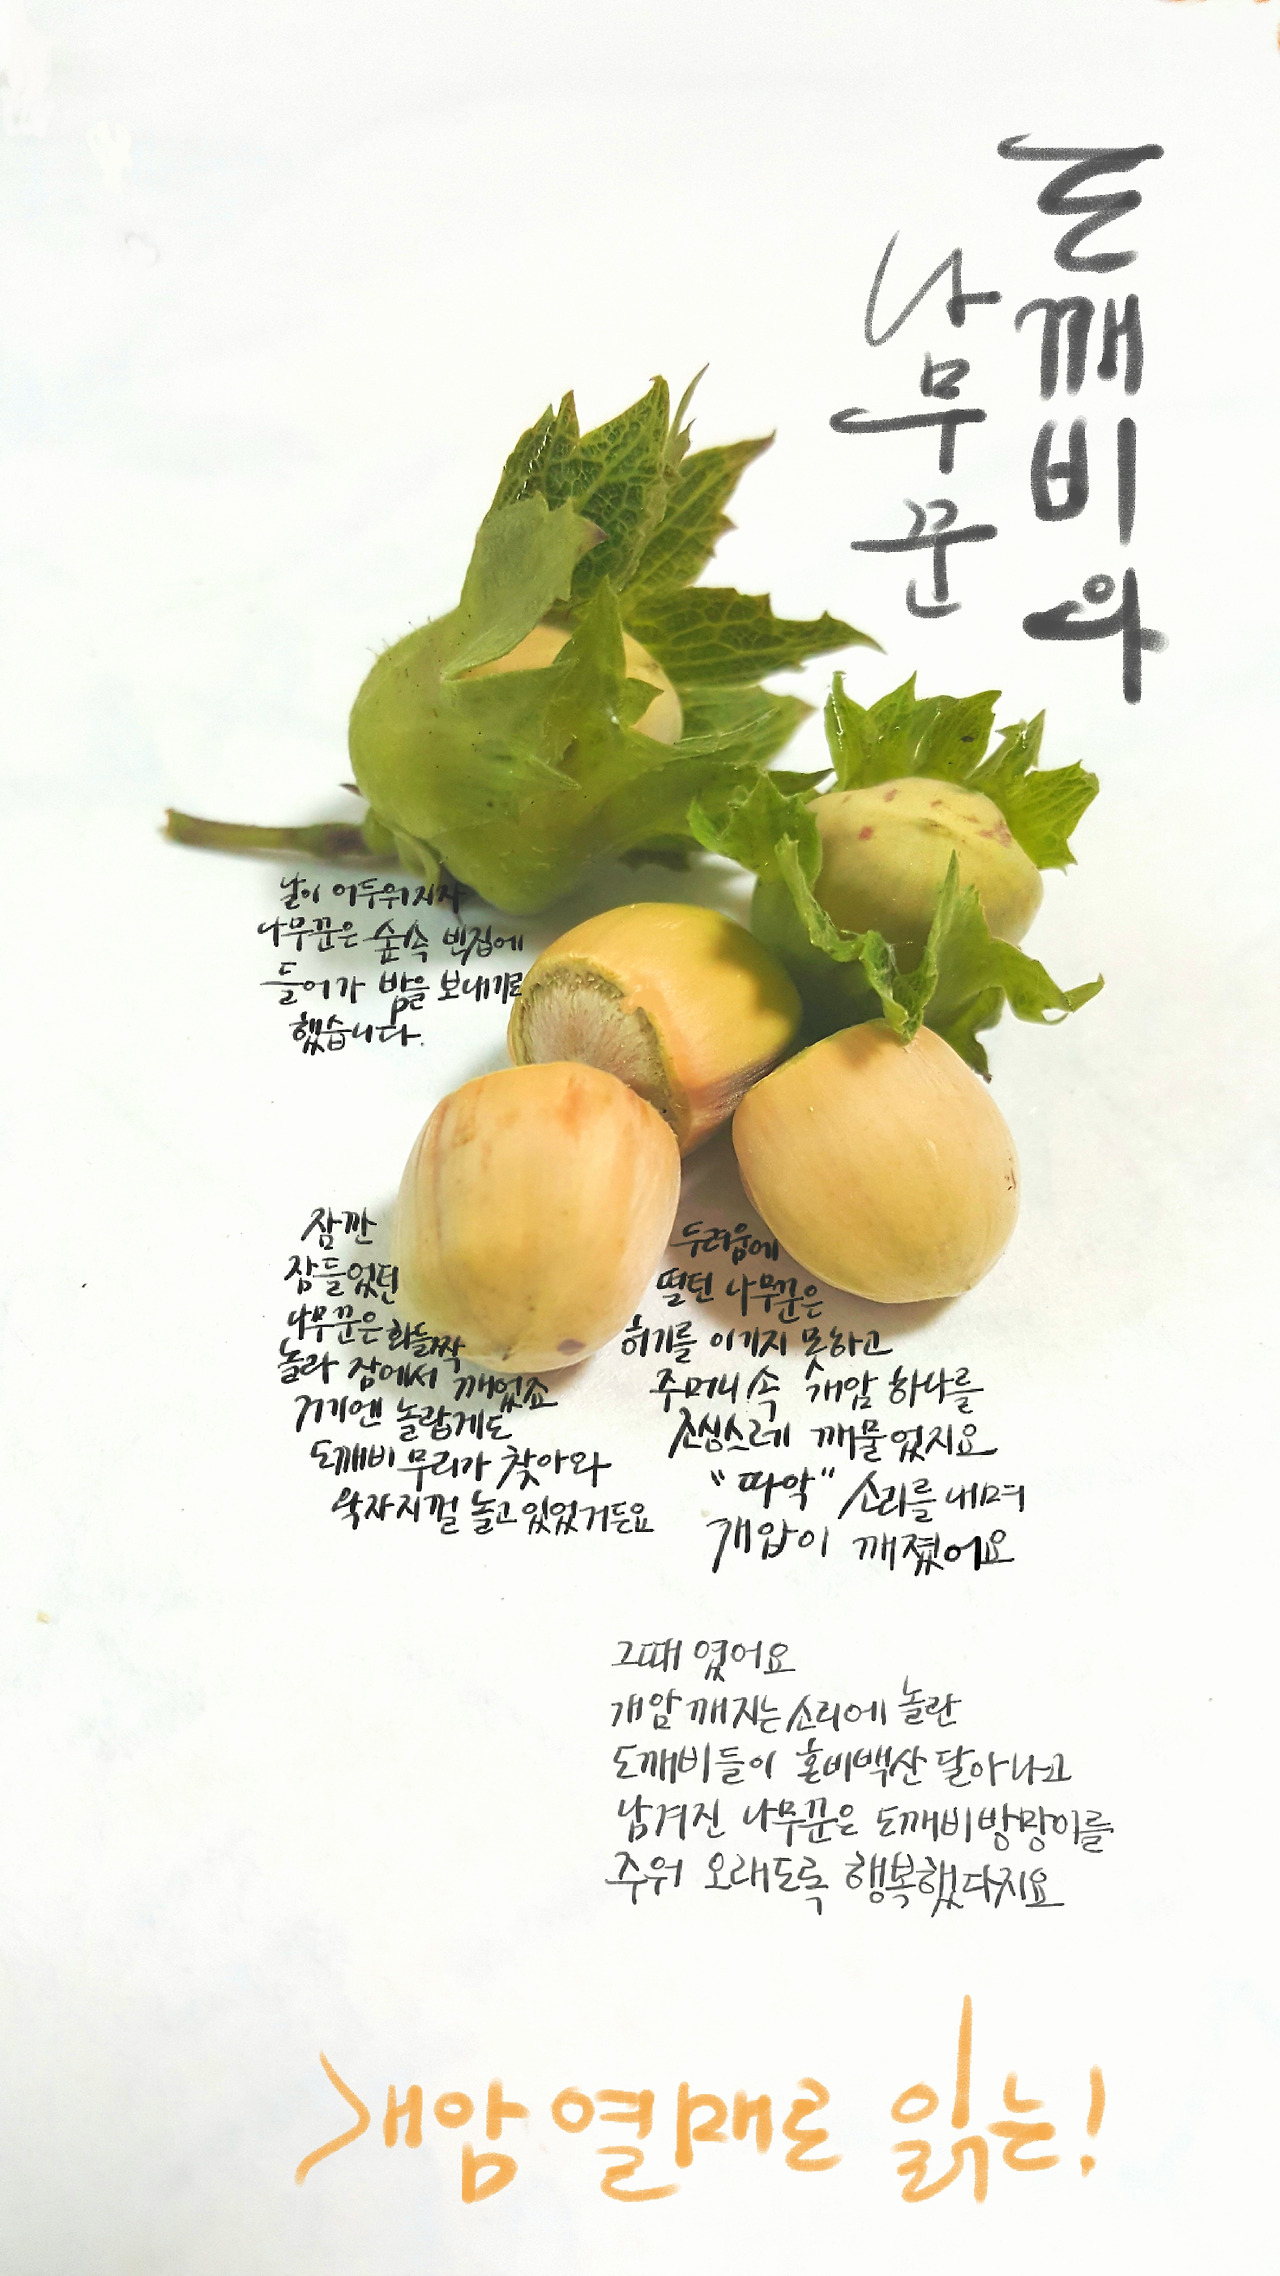 도깨비와
나무꾼
날이 어두워지자
나무꾼은 숲속 빈집에
들어가 밤을 보내기로
했습니다.
잠깐
잠들었던
나무꾼은 화들짝
놀라 잠에서 깨었죠
거기엔 놀랍게도
도깨비 무리가 찾아와
왁자지껄 놀고있었거든요
두려움에
떨던 나무꾼은
허기를 이기지 못하고
주머니 속 개암 하나를
조심스레 깨물었지요
"따악" 소리를 내며
개암이 깨졌어요
그때 였어요
개암 깨지는 소리에 놀란
도깨비들이 혼비백산 달아나고
남겨진 나무꾼은 도깨비방망이를
주워 오래도록 행복했다지요
개암 열매로 읽는!